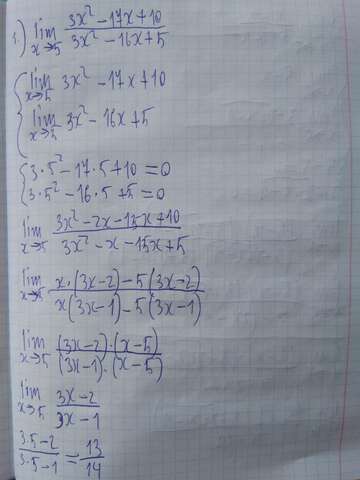 1.) lim x→5 (3x² − 17x + 10)/(3x² − 16x + 5)
{ lim x→5 3x² − 17x + 10
lim x→5 3x² − 16x + 5
{ 3·5² − 17·5 + 10 = 0
3·5² − 16·5 + 5 = 0
lim x→5 (3x² − 2x − 15x + 10)/(3x² − x − 15x + 5)
lim x→5 (x·(3x−2) − 5(3x−2))/(x(3x−1) − 5(3x−1))
lim x→5 ((3x−2)·(x−5))/((3x−1)·(x−5))
lim x→5 (3x−2)/(3x−1)
(3·5−2)/(3·5−1) = 13/14